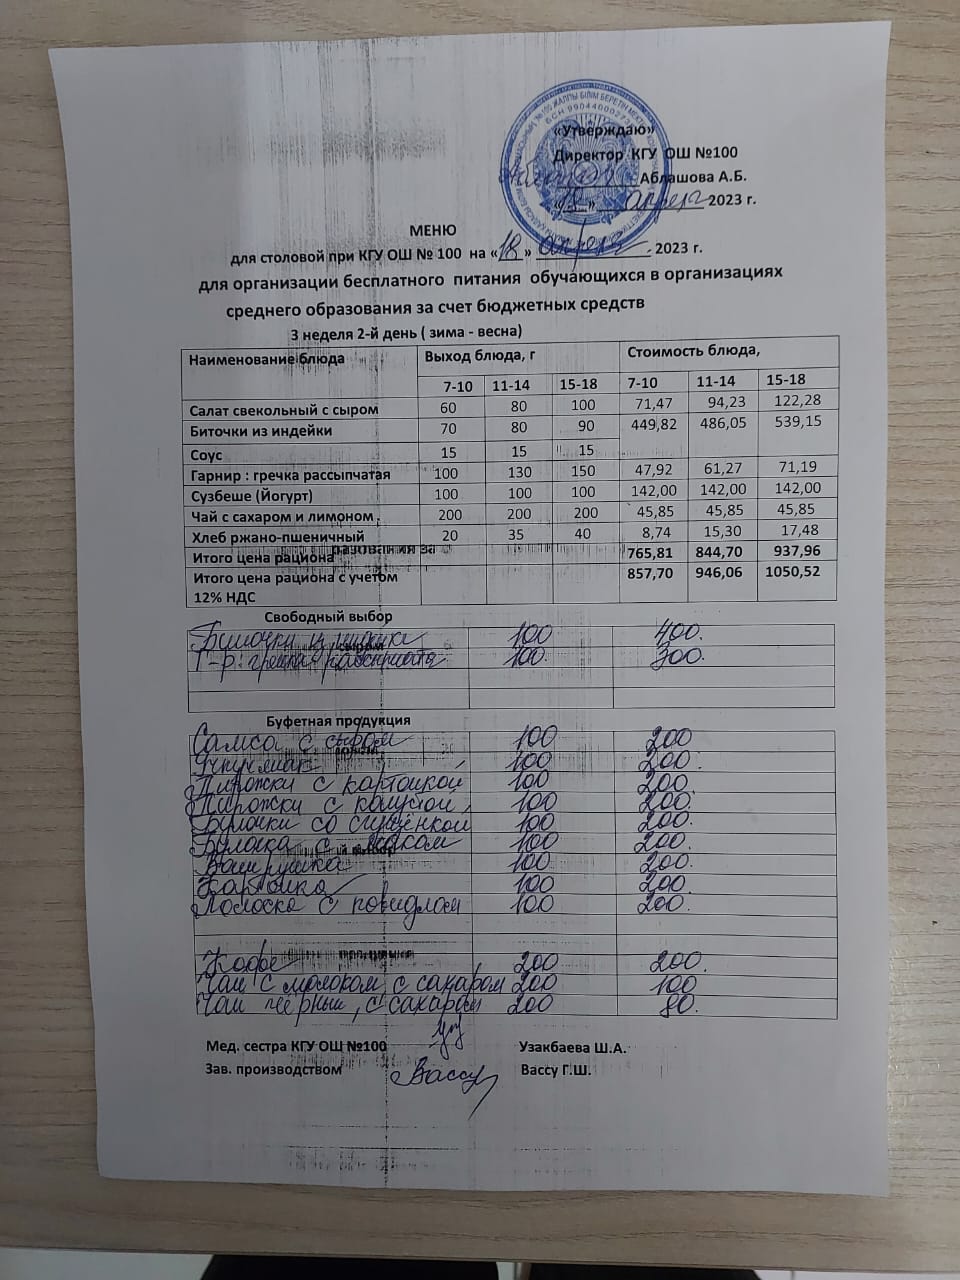 «Утверждаю»
Директор КГУ ОШ №100
Аблашова А.Б.
«18» апреля 2023 г.
МЕНЮ
для столовой при КГУ ОШ № 100 на «18» апреля 2023 г.
для организации бесплатного питания обучающихся в организациях
среднего образования за счет бюджетных средств
3 неделя 2-й день ( зима - весна)
Наименование блюда Выход блюда, г Стоимость блюда,
7-10 11-14 15-18 7-10 11-14 15-18
Салат свекольный с сыром 60 80 100 71,47 94,23 122,28
Биточки из индейки 70 80 90 449,82 486,05 539,15
Соус 15 15 15
Гарнир : гречка рассыпчатая 100 130 150 47,92 61,27 71,19
Сузбеше (Йогурт) 100 100 100 142,00 142,00 142,00
Чай с сахаром и лимоном 200 200 200 45,85 45,85 45,85
Хлеб ржано-пшеничный 20 35 40 8,74 15,30 17,48
Итого цена рациона 765,81 844,70 937,96
Итого цена рациона с учетом 857,70 946,06 1050,52
12% НДС
Свободный выбор
Биточки из 100 400.
Г-р: гречка 100. 300.
Буфетная продукция
Самса с сыром 100 200
Учпучмак 100 200.
Пирожки с картошкой 100 200.
Пирожки с капустой 100 200.
Булочки со сгущёнкой 100 200.
Булочка с маком 100 200.
Ватрушка 100 200.
100 200.
Полоска с повидлом 100 200.
Кофе 200 200.
Чай с молоком, с сахаром 200 100
Чай чёрный, с сахаром 200 80.
Мед. сестра КГУ ОШ №100 Узакбаева Ш.А.
Зав. производством Вассу Г.Ш.